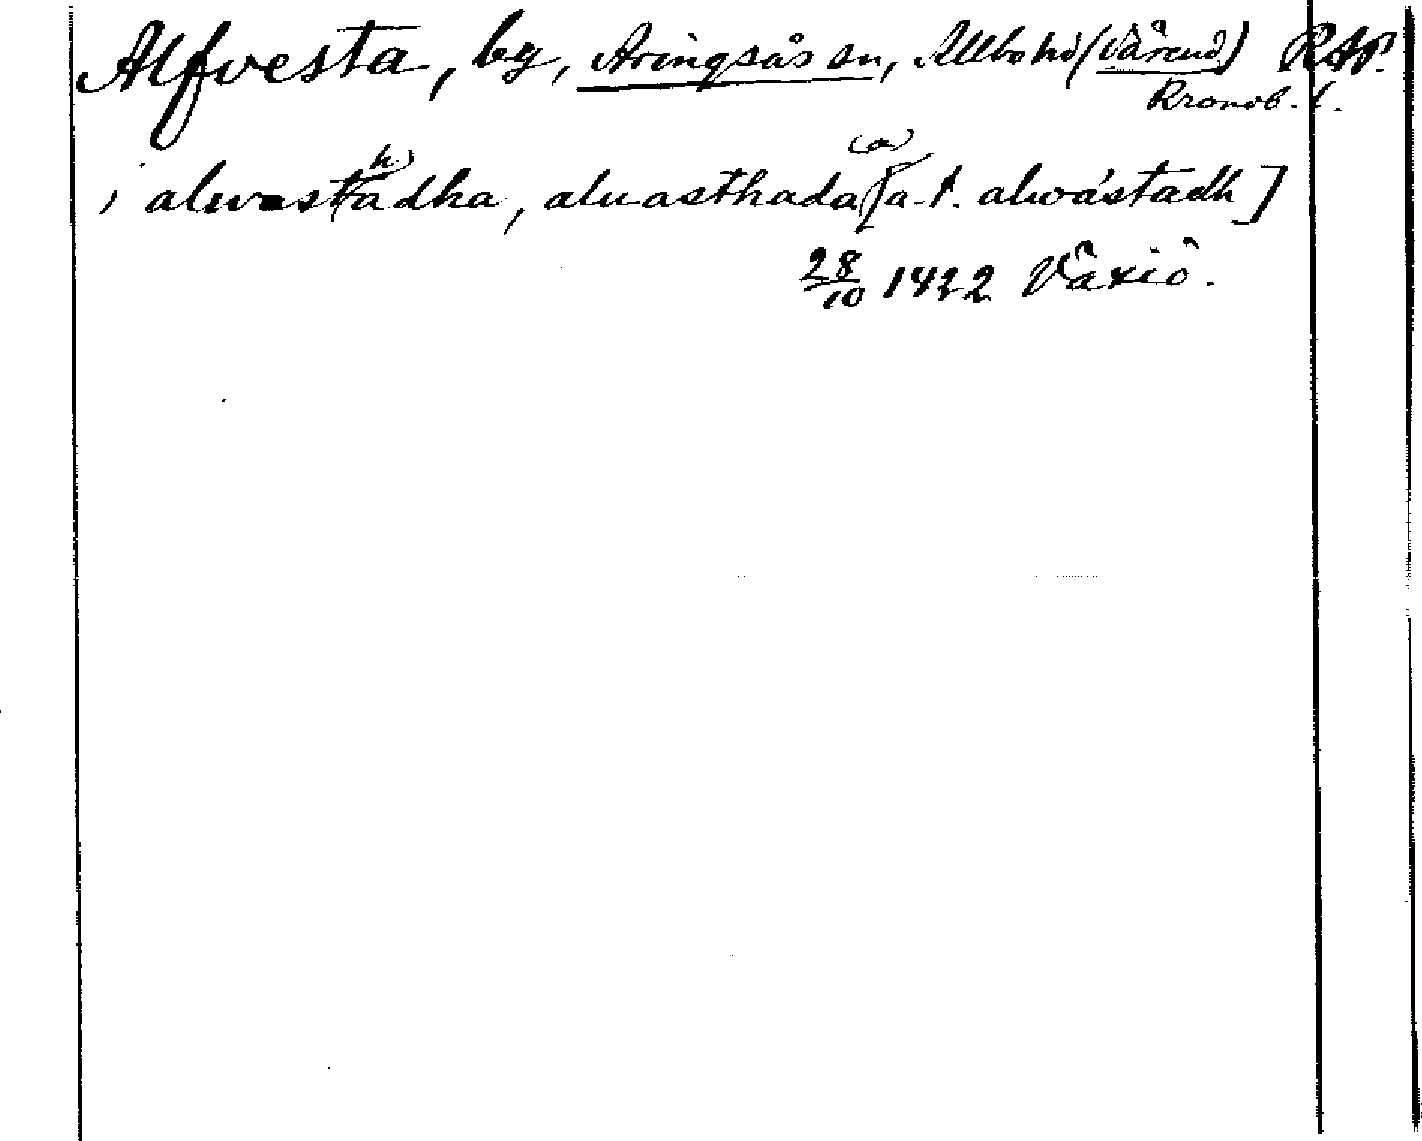 Alfvesta, by, Aringsås sn, Allbo hd (Värend) RAP.
Kronob. l.
i alwastadha, aluasthada [a. t. alwástadh]
(h) (a)
28/10 1422 Växiö.